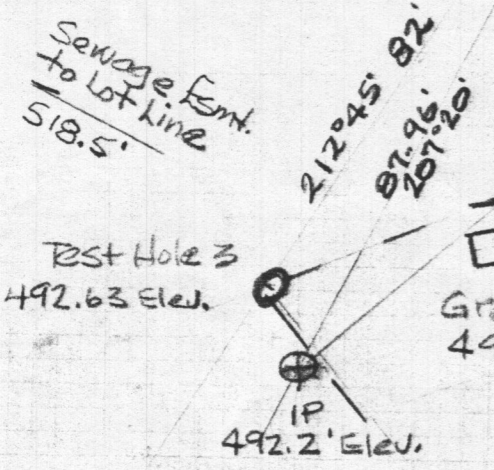 Sewage Esmt.
to Lot Line
518.5'
212°45' 82'
87.96'
207°20'
Test Hole 3
492.63 Elev.
IP
492.2' Elev.
Gr
49